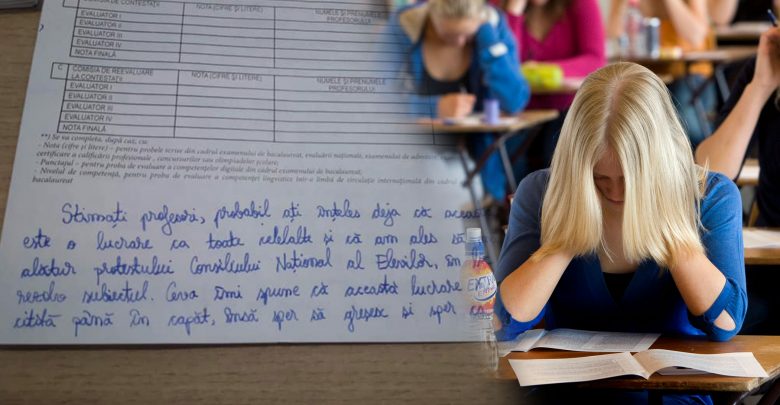 COMISIA DE CONTESTAȚII
NOTA (CIFRE ȘI LITERE)
NUMELE ȘI PRENUMELE PROFESORULUI
EVALUATOR I
EVALUATOR II
EVALUATOR III
EVALUATOR IV
NOTA FINALĂ
C COMISIA DE REEVALUARE LA CONTESTAȚII
NOTA (CIFRE ȘI LITERE)
NUMELE ȘI PRENUMELE PROFESORULUI
EVALUATOR I
EVALUATOR II
EVALUATOR III
EVALUATOR IV
NOTA FINALĂ
**) Se va completa, după caz, cu:
- Nota (cifre și litere) - pentru probele scrise din cadrul examenului de bacalaureat, evaluării naționale, examenului de
certificare a calificării profesionale, concursurilor sau olimpiadelor școlare;
- Punctajul, pentru proba de evaluare a competențelor digitale din cadrul examenului de bacalaureat;
- Nivelul de competență, pentru proba de evaluare a competenței lingvistice într-o limbă de circulație internațională din cadrul
bacalaureat
Stimați profesori, probabil ați înțeles deja că
este o lucrare ca toate celelalte și că am ales să
alătur protestului Consiliului Național al Elevilor,
rezolv subiectul. Ceva îmi spune că această lucrare
citită până în capăt, însă sper să greșesc și sper